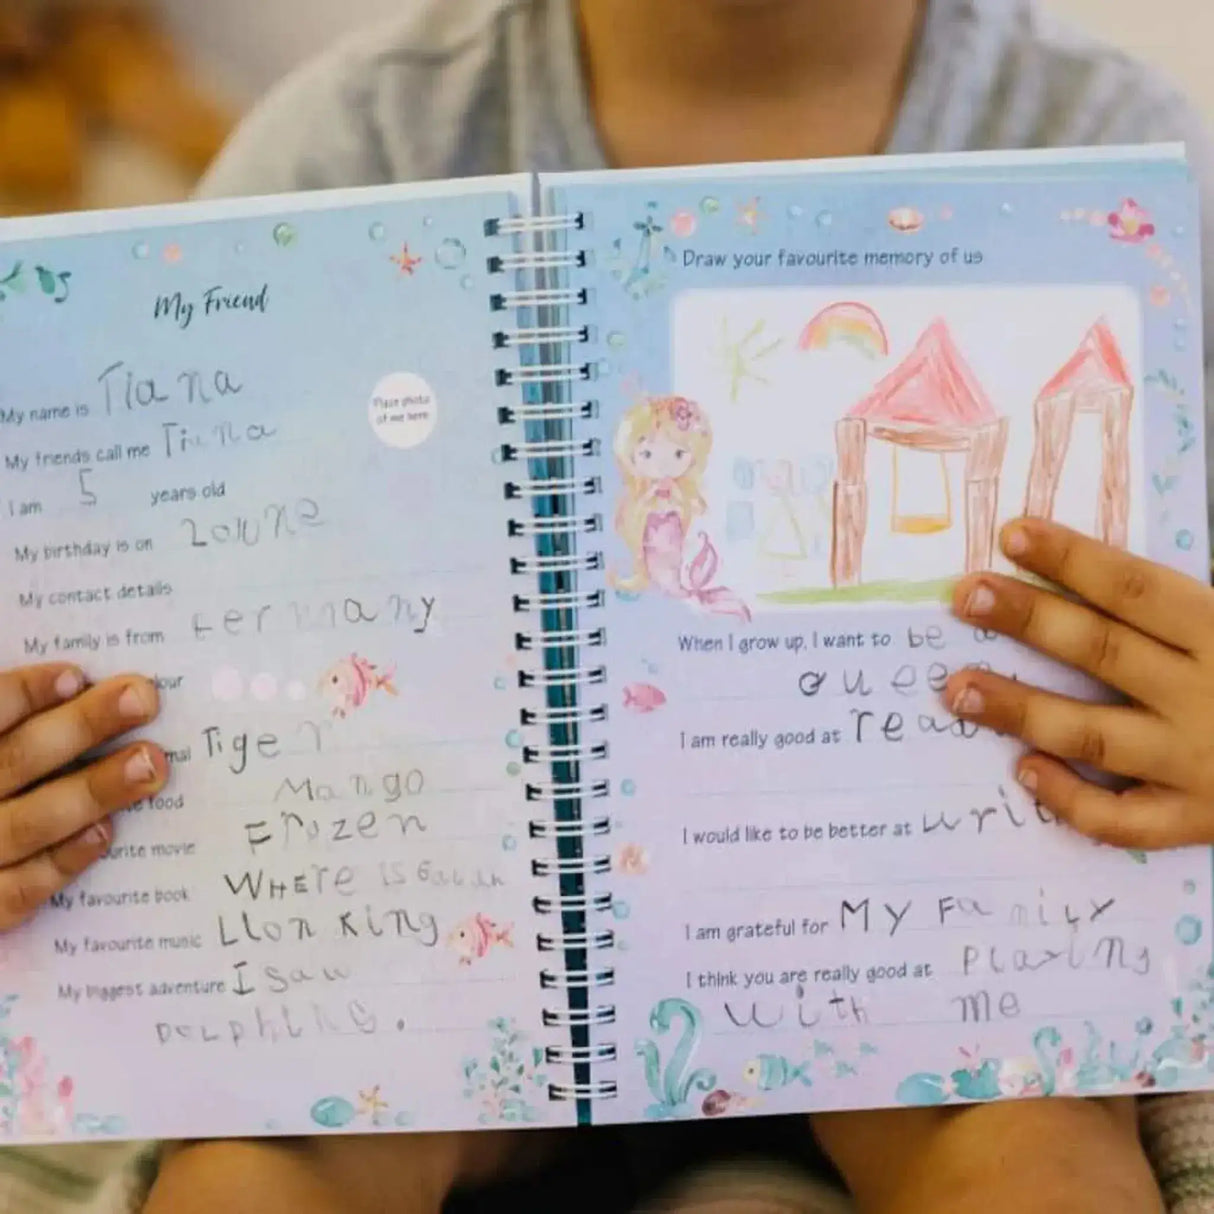 My Friend
My name is Tiana
Place photo
of me here
My friends call me Tiana
I am 5 years old
My birthday is on 20 June
My contact details
My family is from Germany
lour
mal Tiger
te food Mango
urite movie Frozen
My favourite book WHEre IS
My favourite music LIon KIng
My biggest adventure I Saw
DOLPhINS.
Draw your favourite memory of us
When I grow up, I want to be a
queen
I am really good at read
I would like to be better at writ
I am grateful for MY FamiLY
I think you are really good at PLaYing
with me